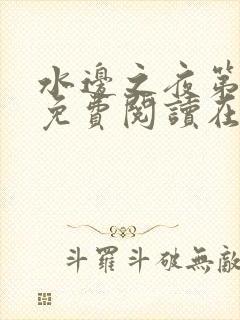 水邊之夜第
免費閱讀在
斗羅斗破無敵